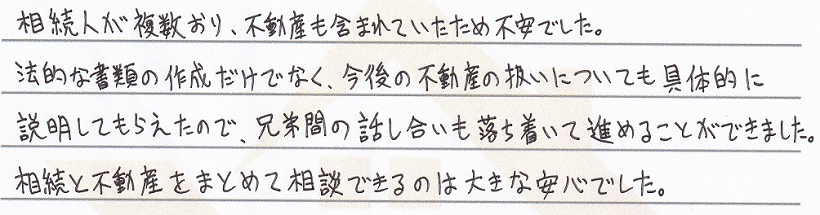 相続人が複数おり、不動産も含まれていたため不安でした。
法的な書類の作成だけでなく、今後の不動産の扱いについても具体的に
説明してもらえたので、兄弟間の話し合いも落ち着いて進めることができました。
相続と不動産をまとめて相談できるのは大きな安心でした。